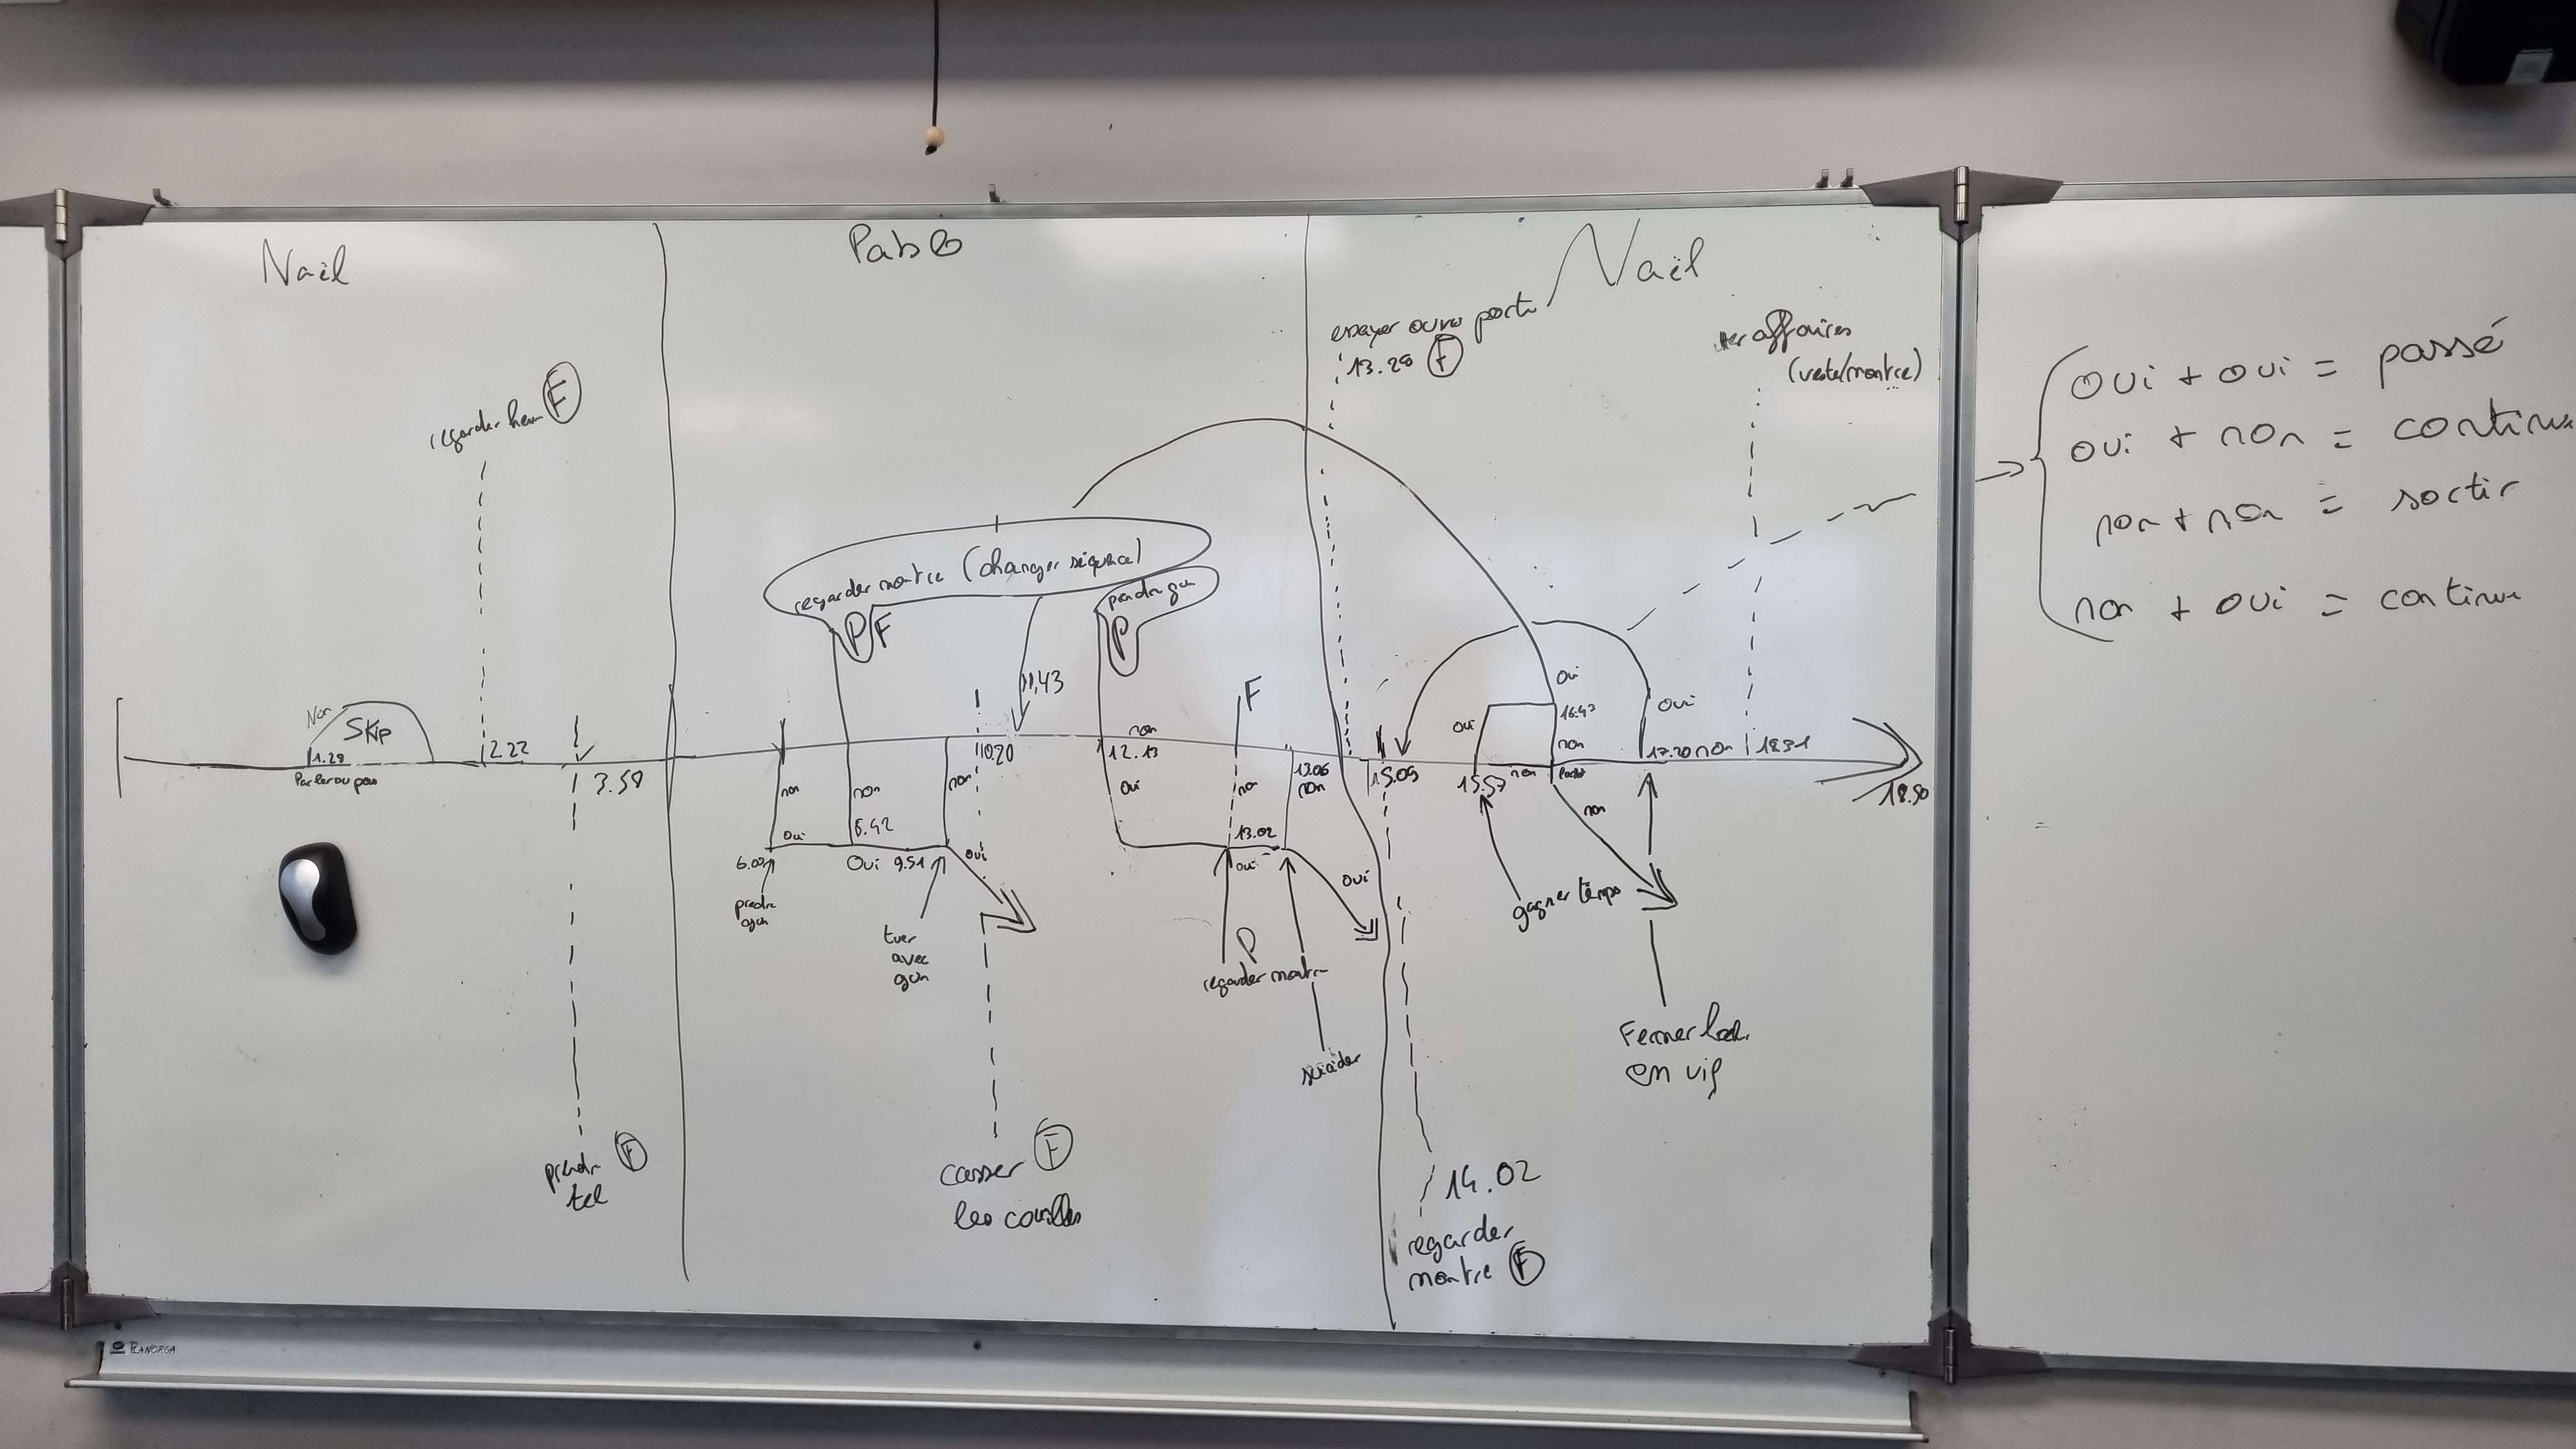 Naël
Pablo
Naël
essayer ouvrir porte
13.28 F
affaires
(veste/montre)
regarder heure F
oui + oui = passé
oui + non = continu
non + non = sortir
non + oui = continu
regarder montre (changer séquence)
P F
prendre gun
P
11,43
F
Non
Skip
1.28
Parler ou pas
2.22
3.58
10.20
12.13
non
13.06
non
15.09
15.57
non
oui
oui
16.43
non
oui
17.20 non
18.31
18.50
non
non
non
oui
non
non
6.42
oui
oui
9.51
oui
13.02
oui
oui
prendre
gun
tuer
avec
gun
P
regarder montre
suicider
gagner temps
Fermer
en vie
prendre F
tel
casser F
les couilles
14.02
regarder
montre F
PLANORGA